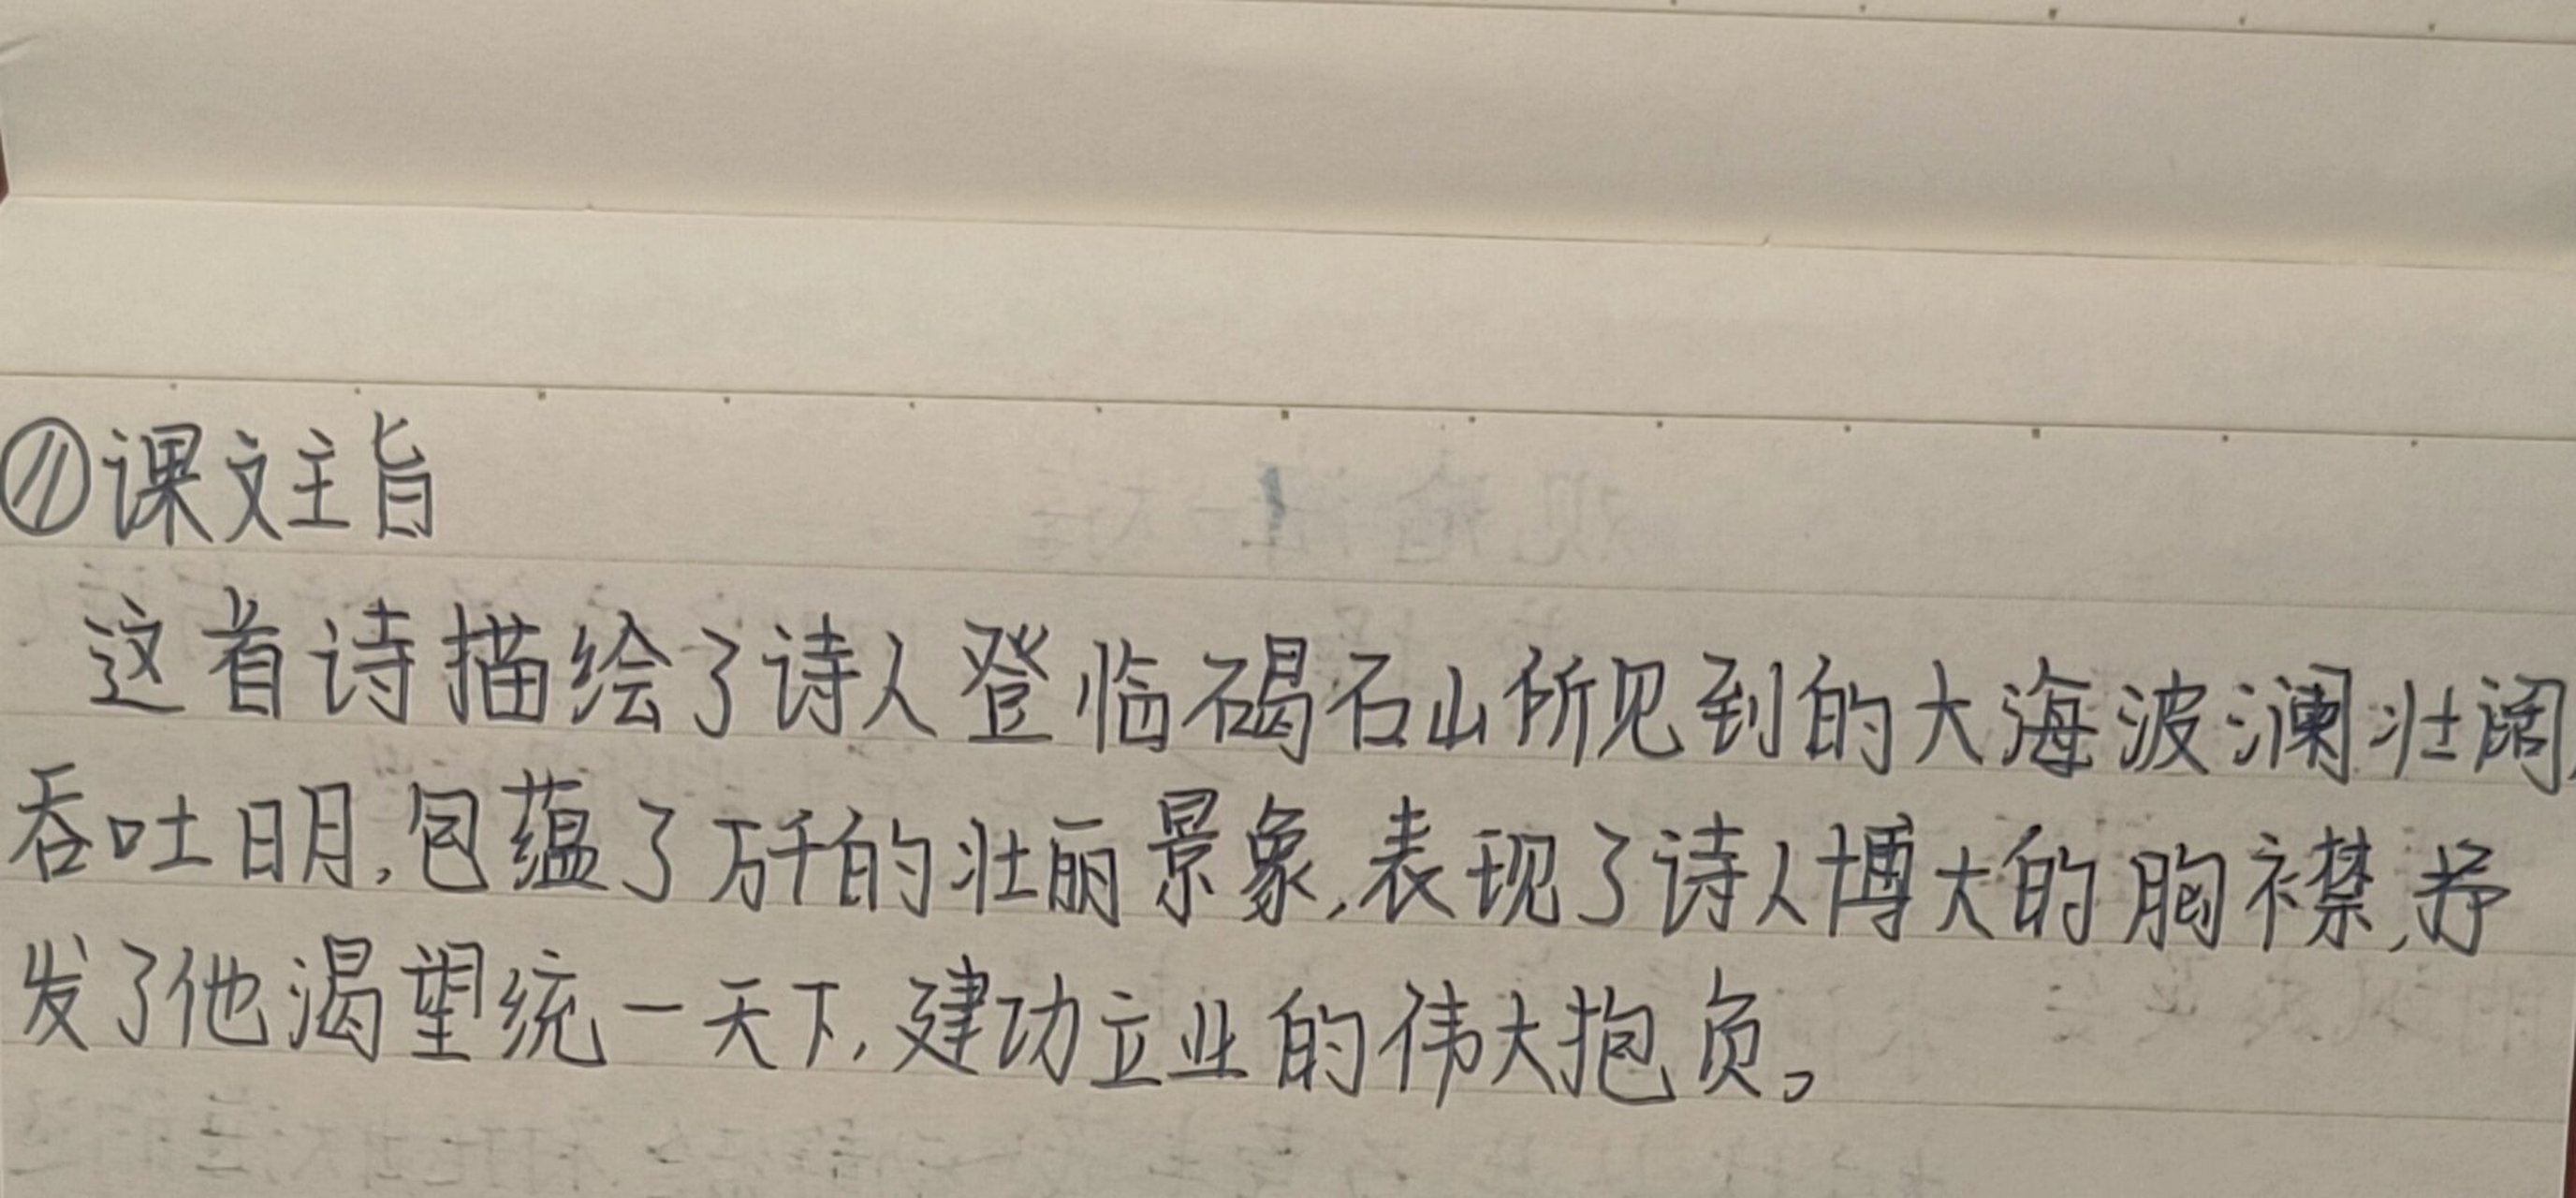 ⑪课文主旨
这首诗描绘了诗人登临碣石山所见到的大海波澜壮阔,
吞吐日月,包蕴了万千的壮丽景象,表现了诗人博大的胸襟,抒
发了他渴望统一天下,建功立业的伟大抱负。